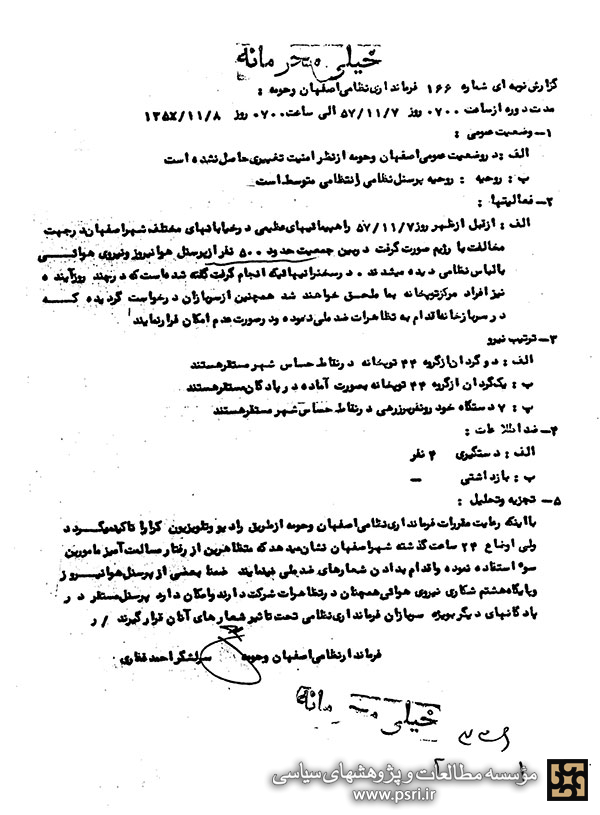 خیلی محرمانه
گزارش نوبه ای شماره ۱۶۶ فرمانداری نظامی اصفهان وحومه :
مدت دوره از ساعت ۰۷۰۰ روز ۵۷/۱۱/۷ الی ساعت ۰۷۰۰ روز ۱۳۵۷/۱۱/۸
۱- وضعیت عمومی :
الف : در وضعیت عمومی اصفهان وحومه از نظر امنیت تغییری حاصل نشده است
ب : روحیه : روحیه پرسنل نظامی و انتظامی متوسط است
۲- فعالیتها :
الف : از قبل از ظهر روز ۵۷/۱۱/۷ راهپیمائیهای عظیمی در خیابانهای مختلف شهر اصفهان در جهت
مخالفت با رژیم صورت گرفت در بین جمعیت حدود ۵۰۰ نفر از پرسنل هوانیروز و نیروی هوائی
با لباس نظامی دیده میشدند ۰ در سخنرانیهائیکه انجام گرفت گفته شده است که در چند روز آینده
نیز افراد مرکز توپخانه بما ملحق خواهند شد همچنین از سربازان درخواست گردیده که
در سربازخانه اقدام به تظاهرات ضد ملی نموده و در صورت عدم امکان فرار نمایند
۳- ترتیب نیرو
الف : دو گردان از گروه ۴۴ توپخانه در نقاط حساس شهر مستقر هستند
ب : یک گردان از گروه ۴۴ توپخانه بصورت آماده در پادگان مستقر هستند
پ : ۷ دستگاه خودرو نفربر زرهی در نقاط حساس شهر مستقر هستند
۴- ضد اطلاعات :
الف : دستگیری ۴ نفر
ب : بازداشتی —
۵- تجزیه وتحلیل :
با اینکه رعایت مقررات فرمانداری نظامی اصفهان وحومه از طریق رادیو وتلویزیون کرارا تاکید میگردد
ولی اوضاع ۲۴ ساعت گذشته شهر اصفهان نشان میدهد که متظاهرین از رفتار مسالمت آمیز مامورین
سو استفاده نموده واقدام بدادن شعارهای ضد ملی مینمایند ضمنا بعضی از پرسنل هوانیروز
وپایگاه هشتم شکاری نیروی هوائی همچنان در تظاهرات شرکت دارند وامکان دارد پرسنل مستقر در
پادگانهای دیگر بویژه سربازان فرمانداری نظامی تحت تاثیر شعارهای آنان قرار گیرند / ر
فرماندار نظامی اصفهان وحومه سرلشگر احمد غفاری
خیلی محرمانه
مؤسسه مطالعات و پژوهشهای سیاسی
www.psri.ir